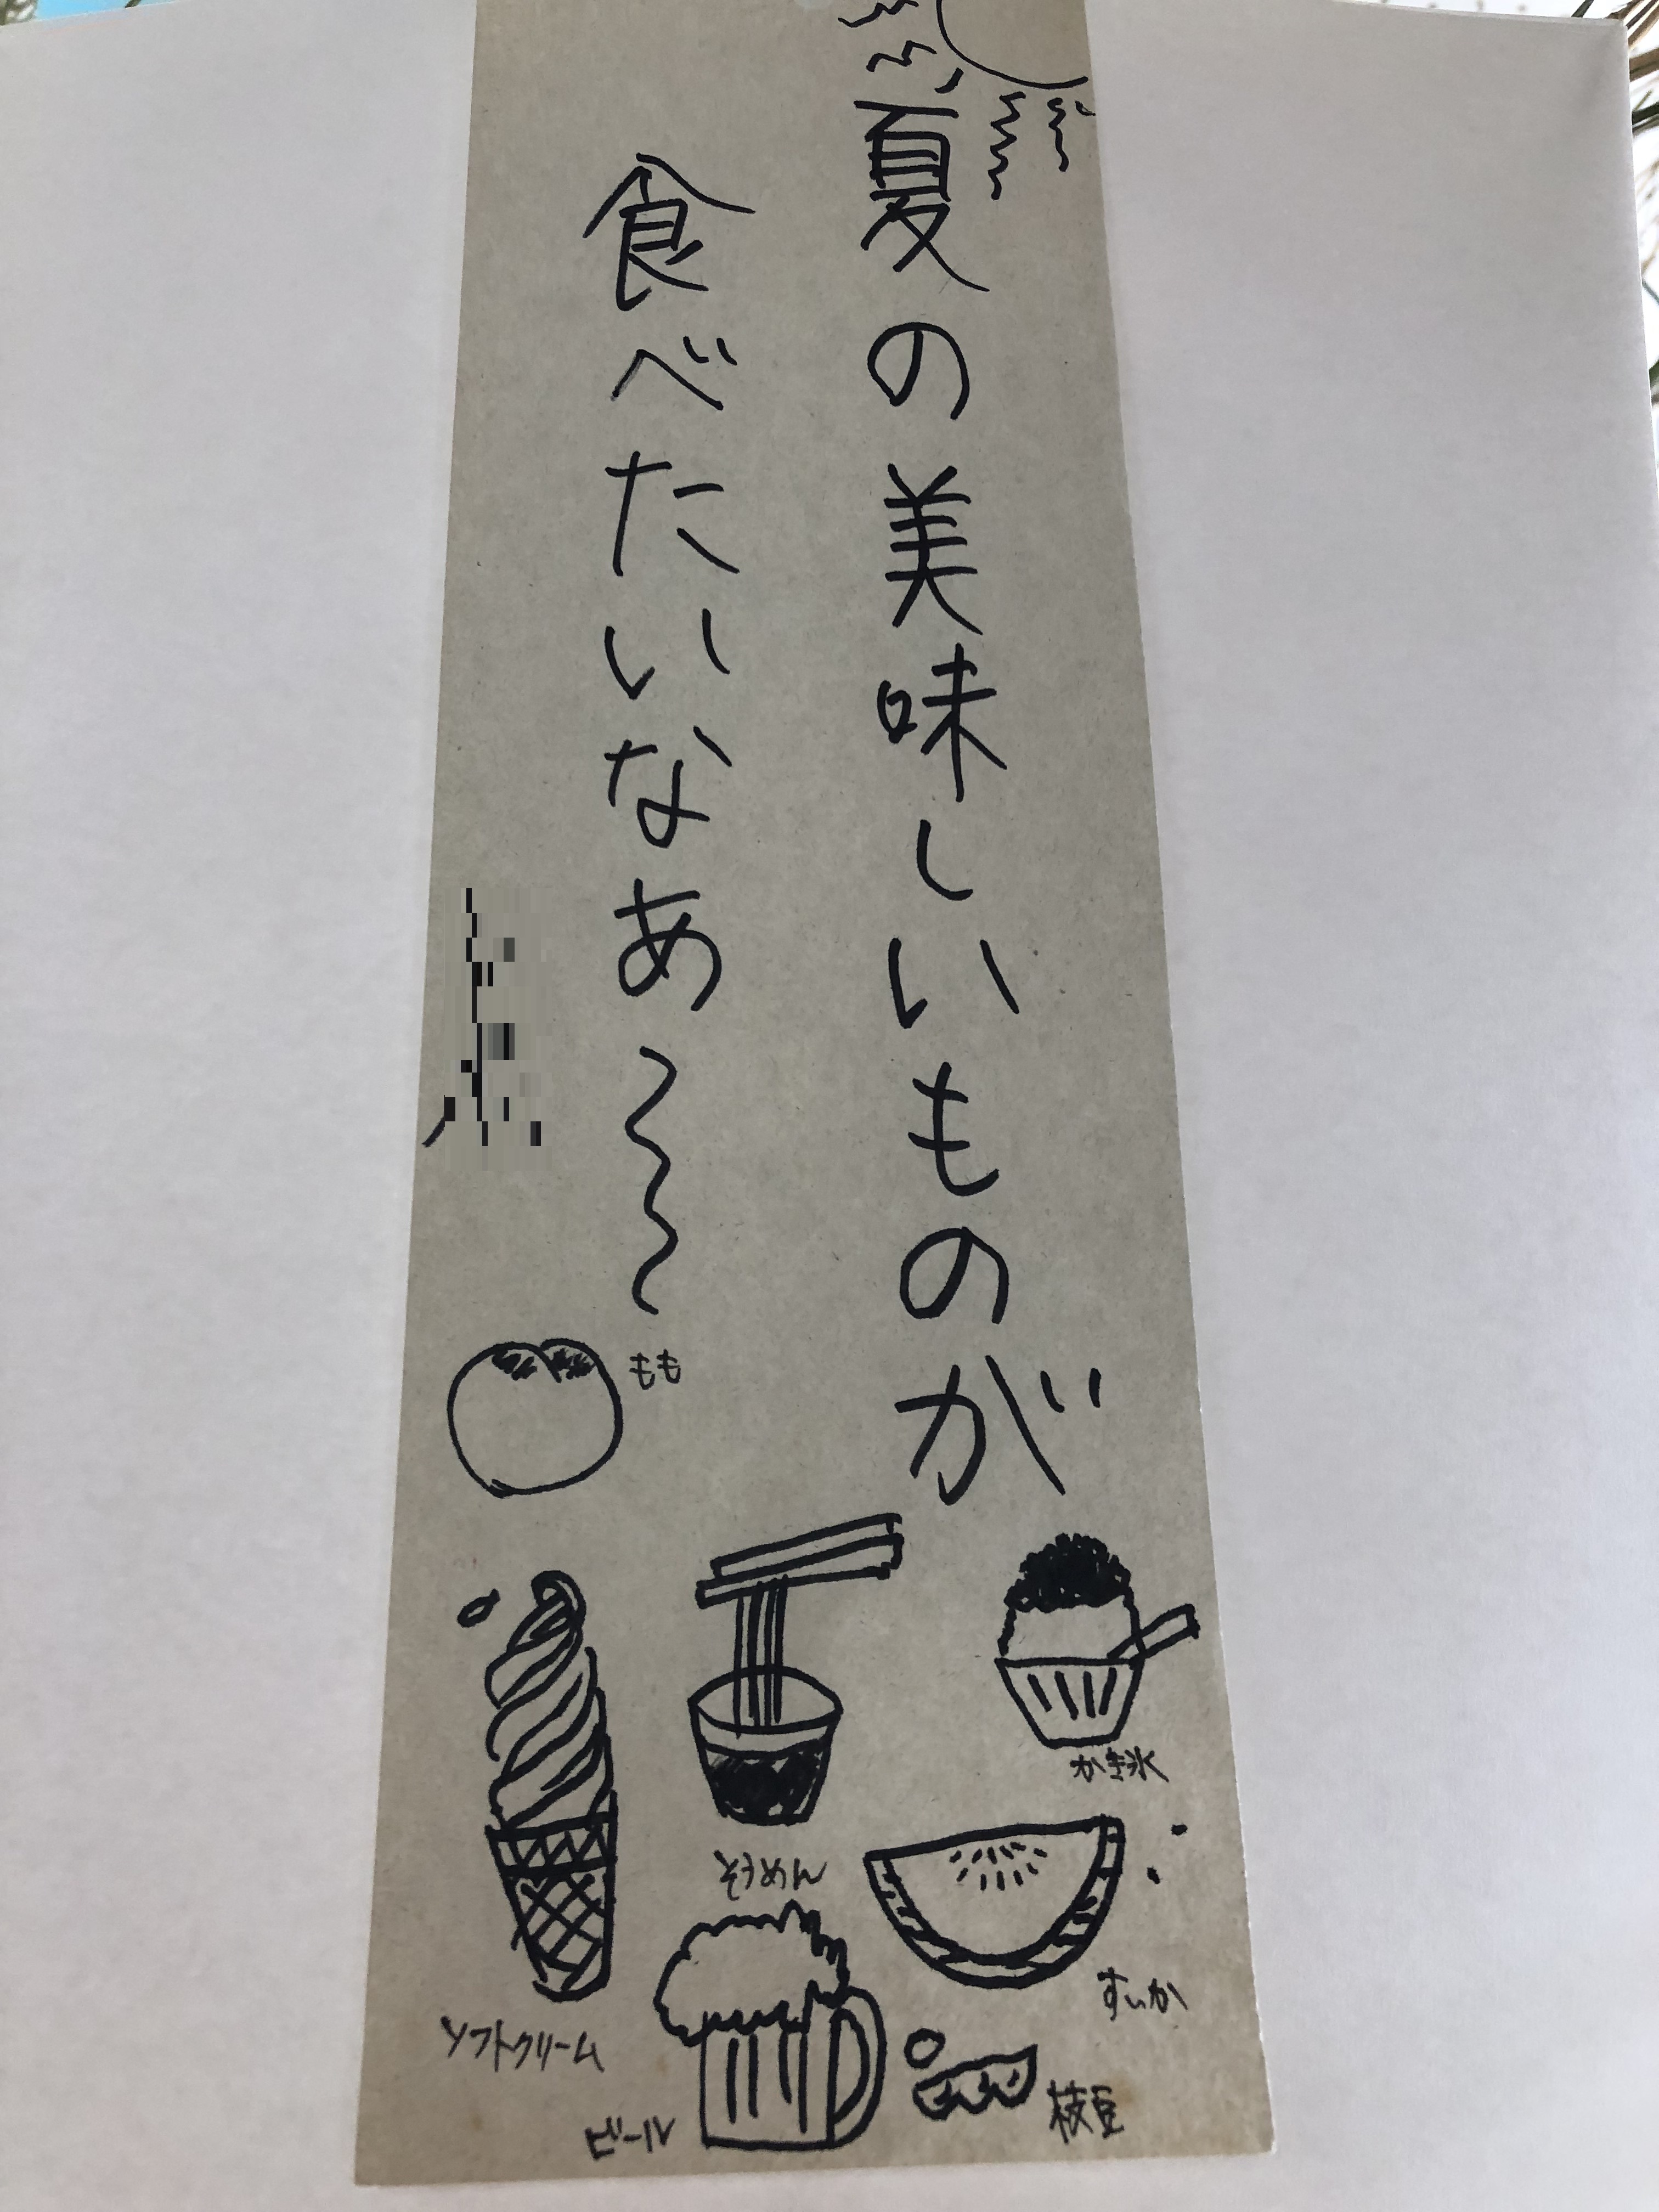 夏の美味しいものが
食べたいなあ〜〜
もも
かき氷
そうめん
すいか
ソフトクリーム
ビール
枝豆